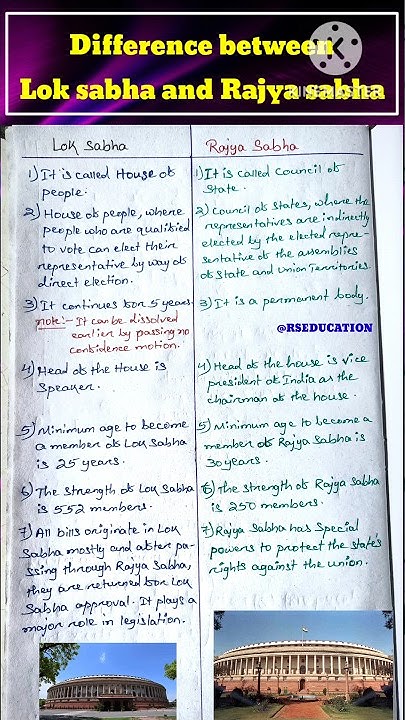 Difference between
Lok sabha and Rajya sabha
KINEMASTER
Lok Sabha
1) It is called House of
people.
2) House of people, where
people who are qualified
to vote can elect their
representative by way of
direct election.
3) It continues for 5 years.
note:- It can be dissolved
earlier by passing no
confidence motion.
4) Head of the House is
Speaker.
5) Minimum age to become
a member of Lok Sabha
is 25 years.
6) The strength of Lok Sabha
is 552 members.
7) All bills originate in Lok
Sabha mostly and after pa-
ssing through Rajya Sabha,
they are returned for Lok
Sabha approval. It plays a
major role in legislation.
Rajya Sabha
1) It is called Council of
State.
2) Council of States, where the
representatives are indirectly
elected by the elected repre-
sentative of the assemblies
of State and Union Territories.
3) It is a permanent body.
@RSEDUCATION
4) Head of the house is vice
president of India as the
chairman of the house.
5) Minimum age to become a
member of Rajya Sabha is
30 years.
6) The strength of Rajya Sabha
is 250 members.
7) Rajya Sabha has special
powers to protect the state's
rights against the union.